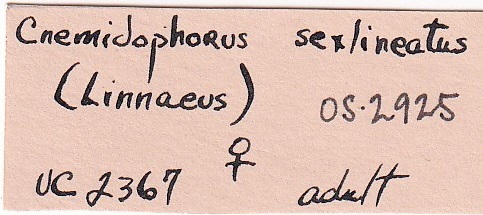 Cnemidophorus sexlineatus
(Linnaeus) OS-2925
♀
UC 2367 adult